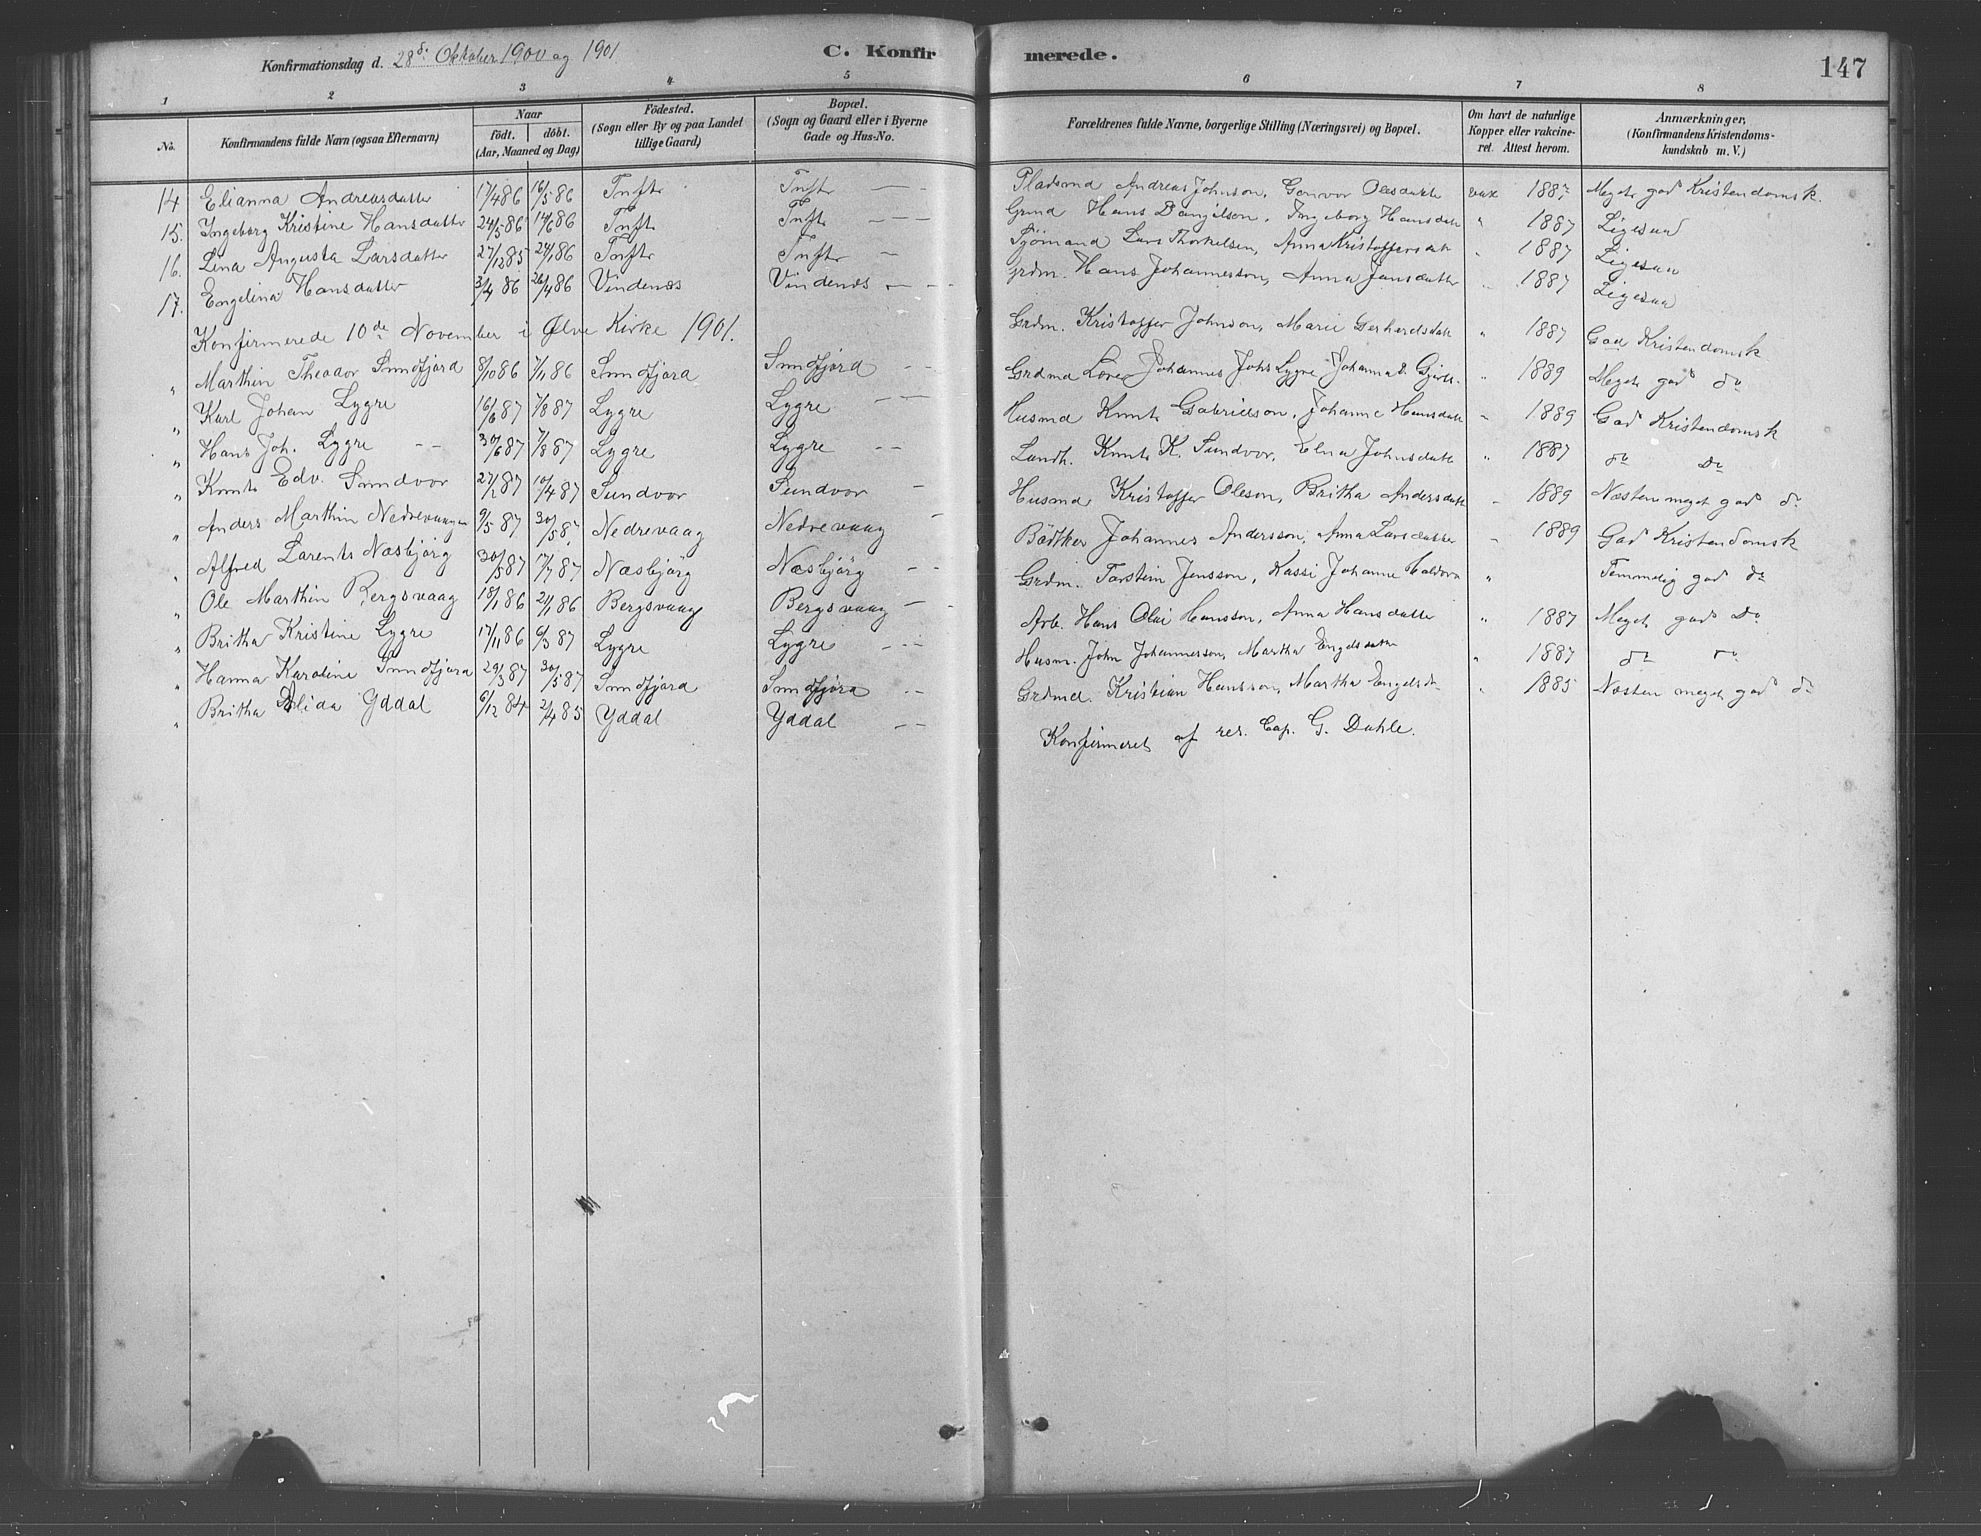 Konfirmationsdag d. 28de Oktober 1900 og 1901
C. Konfirmerede.
147
1 2 3 4 5 6 7 8
No.
Konfirmandens fulde Navn (ogsaa Efternavn)
Naar
födt. döbt.
(Aar, Maaned og Dag)
Födested.
(Sogn eller By og paa Landet
tillige Gaard)
Bopæl.
(Sogn og Gaard eller i Byerne
Gade og Hus-No.
Forældrenes fulde Navne, borgerlige Stilling (Næringsvei) og Bopæl.
Om havt de naturlige
Kopper eller vakcine-
ret. Attest herom.
Anmærkninger,
(Konfirmandens Kristendoms-
kundskab m. V.)
14 Elianna Andreasdatter 17/4 86 16/5 86 Tufte Tufte — - Pladsmd Andreas Johnson, Gunvor Olesdatte vax 1887 Meget god Kristendomsk.
15. Ingeborg Kristine Hansdatter 24/5 86 14/6 86 Tufte Tufte - - - Grmd Hans Danielson, Ingeborg Hansdatt " 1887 Ligesaa
16. Lina Augusta Larsdatter 27/12 85 24/1 86 Tufte Tufte — Sjömand Lars Thorkelsen, Anna Kristoffersdat " 1887 Ligesaa
17. Engelina Hansdatter 3/4 86 26/4 86 Vindenes Vindenes - - - grdm. Hans Johannesson, Anna Jansdatter " 1887 Ligesaa
Konfirmerede 10de November i Ølve Kirke 1901.
" Marthin Theodor Sundfjord 8/10 86 7/11 86 Sundfjord Sundfjord - - Grdm. Kristoffer Johnson, Marie Gerhardsdatt " 1887 God Kristendomsk
" Karl Johan Lygre 16/6 87 7/8 87 Lygre Lygre — — Grdmd Johannes Johs Lygre Johanna " 1889 Meget god do
" Hans Joh. Lygre - - 30/6 87 7/8 87 Lygre Lygre - - Husmd Knut Gabrielson, Johanne Hansdatt " 1889 God Kristendomsk
" Knut Edv. Sundvor 27/2 87 10/4 87 Sundvor Sundvor - Landh. Knut K. Sundvor, Elna Johnsdatt " 1887 do Do
" Anders Marthin Nedrevaagen 9/5 87 30/5 87 Nedrevaag Nedrevaag - Husmd Kristoffer Oleson, Britha Andersdatt " 1889 Næsten meget god do
" Alfred Larents Næsbjörg 30/5 87 17/7 87 Næsbjörg Næsbjörg - - Bödtker Johannes Andersson, Anna Larsdatter " 1889 God Kristendomsk
" Ole Marthin Bergsvaag 18/1 86 21/1 86 Bergsvaag Bergsvaag - - Grdm. Torstein Jensson, Kassi Johanne " Temmelig god do
" Britha Kristine Lygre 17/11 86 6/3 87 Lygre Lygre - - - Arb. Hans Olai Hansson, Anna Hansdatter " 1887 Meget god Do
" Hanna Karoline Sundfjord 29/3 87 30/5 87 Sundfjord Sundfjord - - Husm. John Johannesson, Martha Engelsdatter " 1887 do do
" Britha Alida Yddal 6/12 84 2/4 85 Yddal Yddal - - Grdmd. Kristian Hansson, Martha Engelsda " 1885 Næsten meget god do
Konfirmeret af res. Cap. G. Dahle.